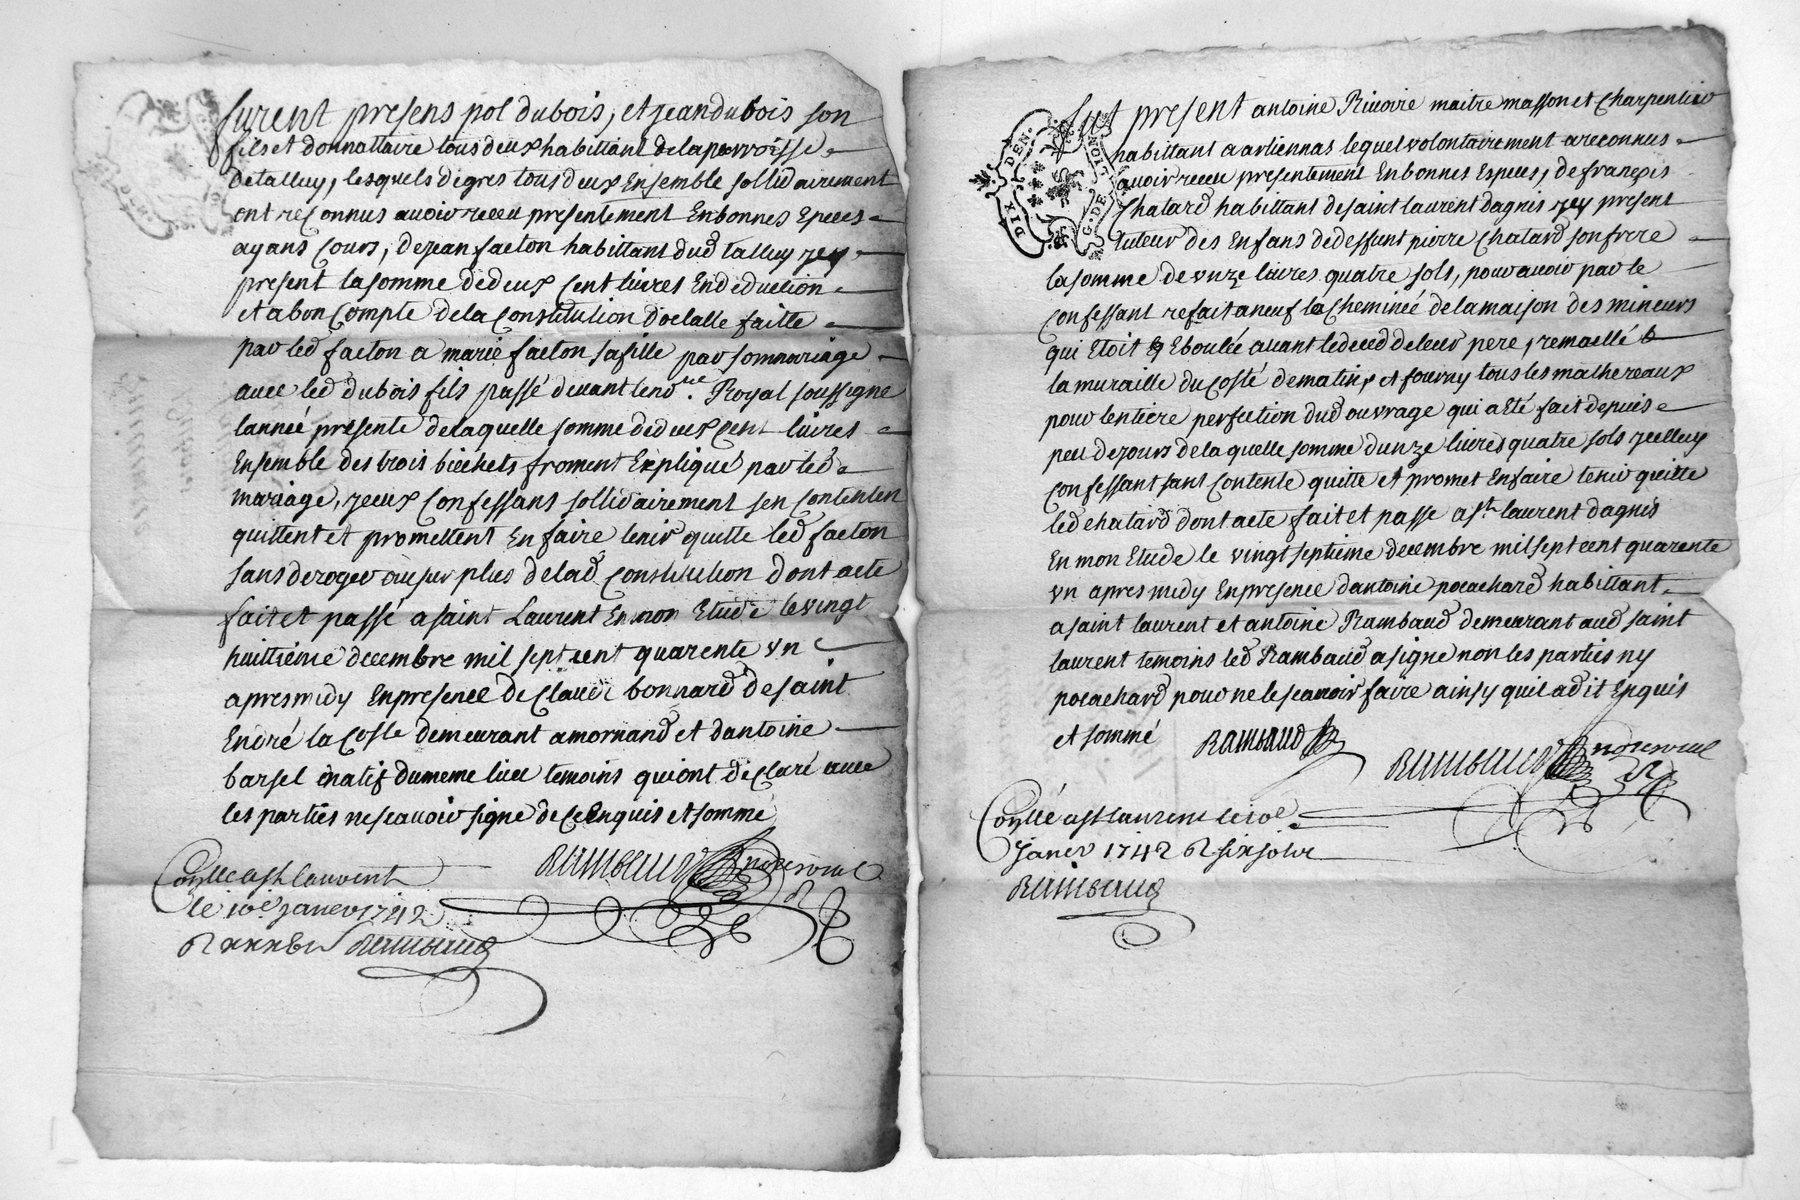 furent presens pol dubois, et jean dubois son
fils et donnattaire tous deux habittant de la parroisse
de talluy, lesquels de gres tous deux Ensemble sollidairement
ont reconnus avoir receu presentement En bonnes Epeces
ayans Cours, de jean facton habittant dud talluy jcy
present la somme de deux Cent livres En deduction
et a bon Compte de la Constitution doctalle faitte
par led facton a marie facton sa fille par son mariage
avec led dubois fils passé devant le no.re Royal soussigne
lanneé presente de laquelle somme de deux Cent livres
Ensemble des trois bichets froment Expliqué par led
mariage, jceux Confessans sollidairement sen Contentent
quittent et promettent En faire tenir quitte led facton
sans deroger au sur plus de lad Constitution dont acte
fait et passé a saint Laurent En mon Etude le vingt
huittiéme decembre mil sept cent quarente vn
apres midy En presence de Claude bonnard de saint
Endré la Coste demeurant a mornand et dantoine
barsel natif du meme lieu temoins qui ont declaré avec
les parties ne scavoir signe de Ce Enquis et sommé
Rambaud no.re royal
Conllé a st laurent
le 10e janer 1742
Rambaud
DIX DEN.
G. DE LION
fut present antoine Rivoire maitre masson et Charpentier
habittant a artiennas lequel volontairement a reconnus
avoir receu presentement En bonnes Especes, de françois
Chatard habittant de saint laurent dagnis jcy present
tuteur des Enfans de deffunt pierre Chatard son frere
la somme de vnze livres quatre sols, pour avoir par le
Confessant refait a neuf la Chemineé de la maison des mineurs
qui Etoit Ebouleé avant le deced de leur pere, remaellé
la muraille du Costé de matin, et fourny tous les mathereaux
pour lentiere perfection dud ouvrage qui a Eté fait depuis
peu de jours de la quelle somme dunze livres quatre sols jcelluy
Confessant sant Contente quitte et promet En faire tenir quitte
led chatard dont acte fait et passe a st laurent dagnis
En mon Etude le vingt septieme decembre mil sept cent quarente
vn apres midy En presence dantoine pocachard habittant
a saint laurent et antoine Rambaud demeurant aud saint
laurent temoins led Rambaud a signe non les parties ny
pocachard pour ne le scavoir faire ainsy quil a dit Enquis
et sommé Rambaud
Rambaud no.re royal
Conllé a st laurent le 10e
janer 1742 R six sols
Rambaud